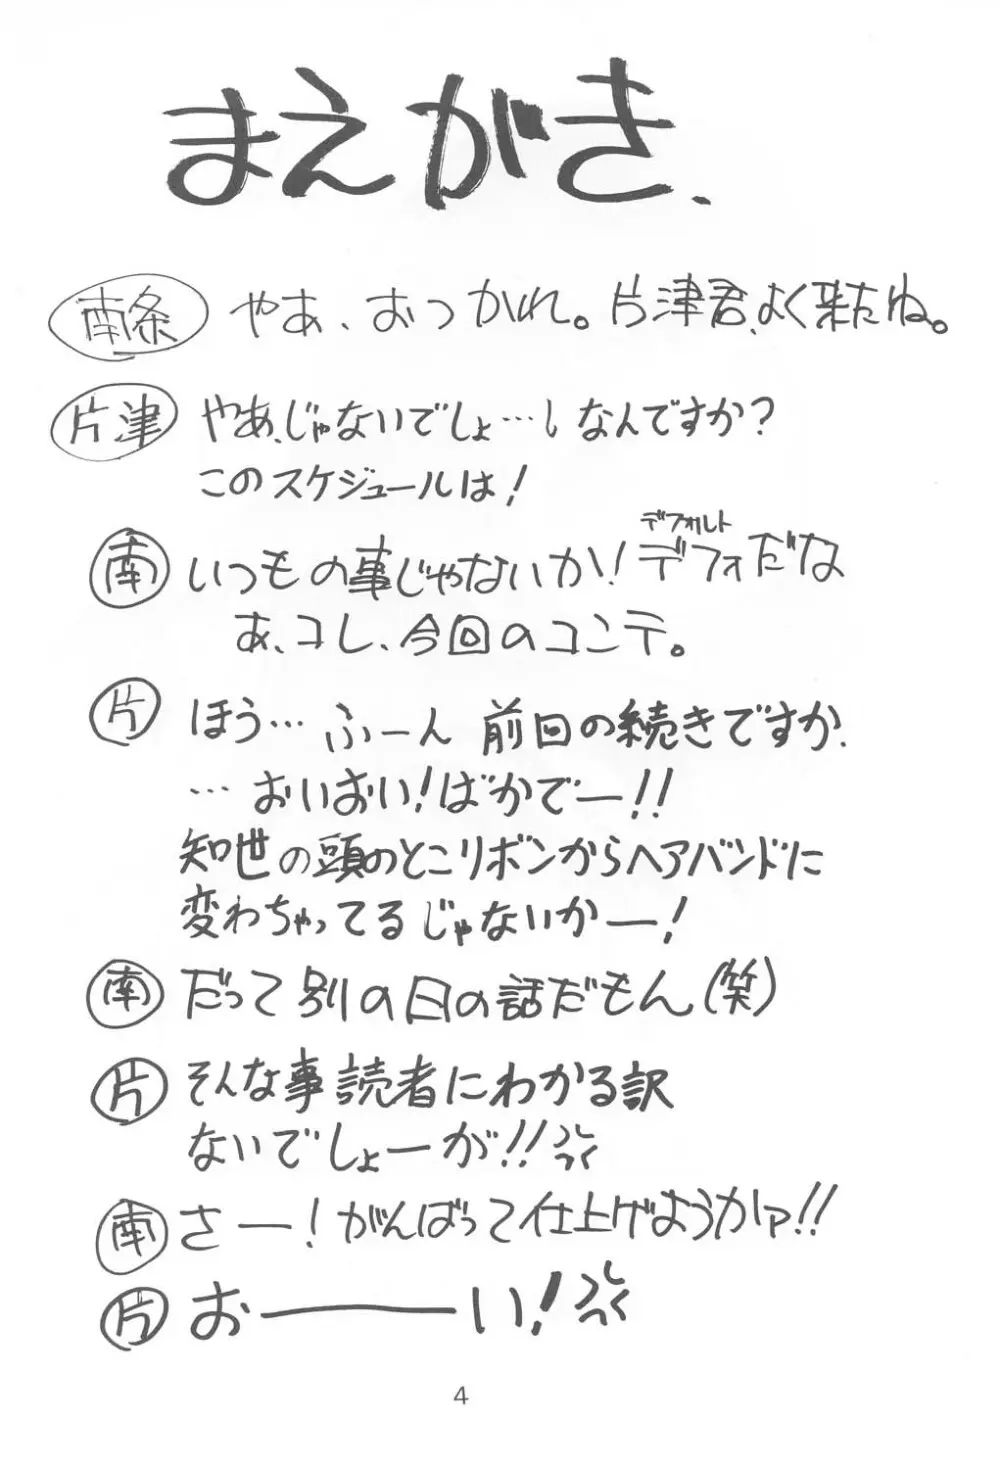 まえがき.
南条 やあ、おつかれ。片津君、よく来たね。
片津 やあ、じゃないでしょ…しなんですか?
このスケジュールは!
デフォルト
南 いつもの事じゃないか!デフォだな
あ、コレ、今回のコンテ。
片 ほう… ふーん 前回の続きですか.
…おいおい!ばかでー!!
知世の頭のとこリボンからヘアバンドに
変わちゃってるじゃないかー!
南 だって別の日の話だもん(笑)
片 そんな事読者にわかる訳
ないでしょーが!!
南 さー!がんばって仕上げようかァ!!
片 おーい!
4